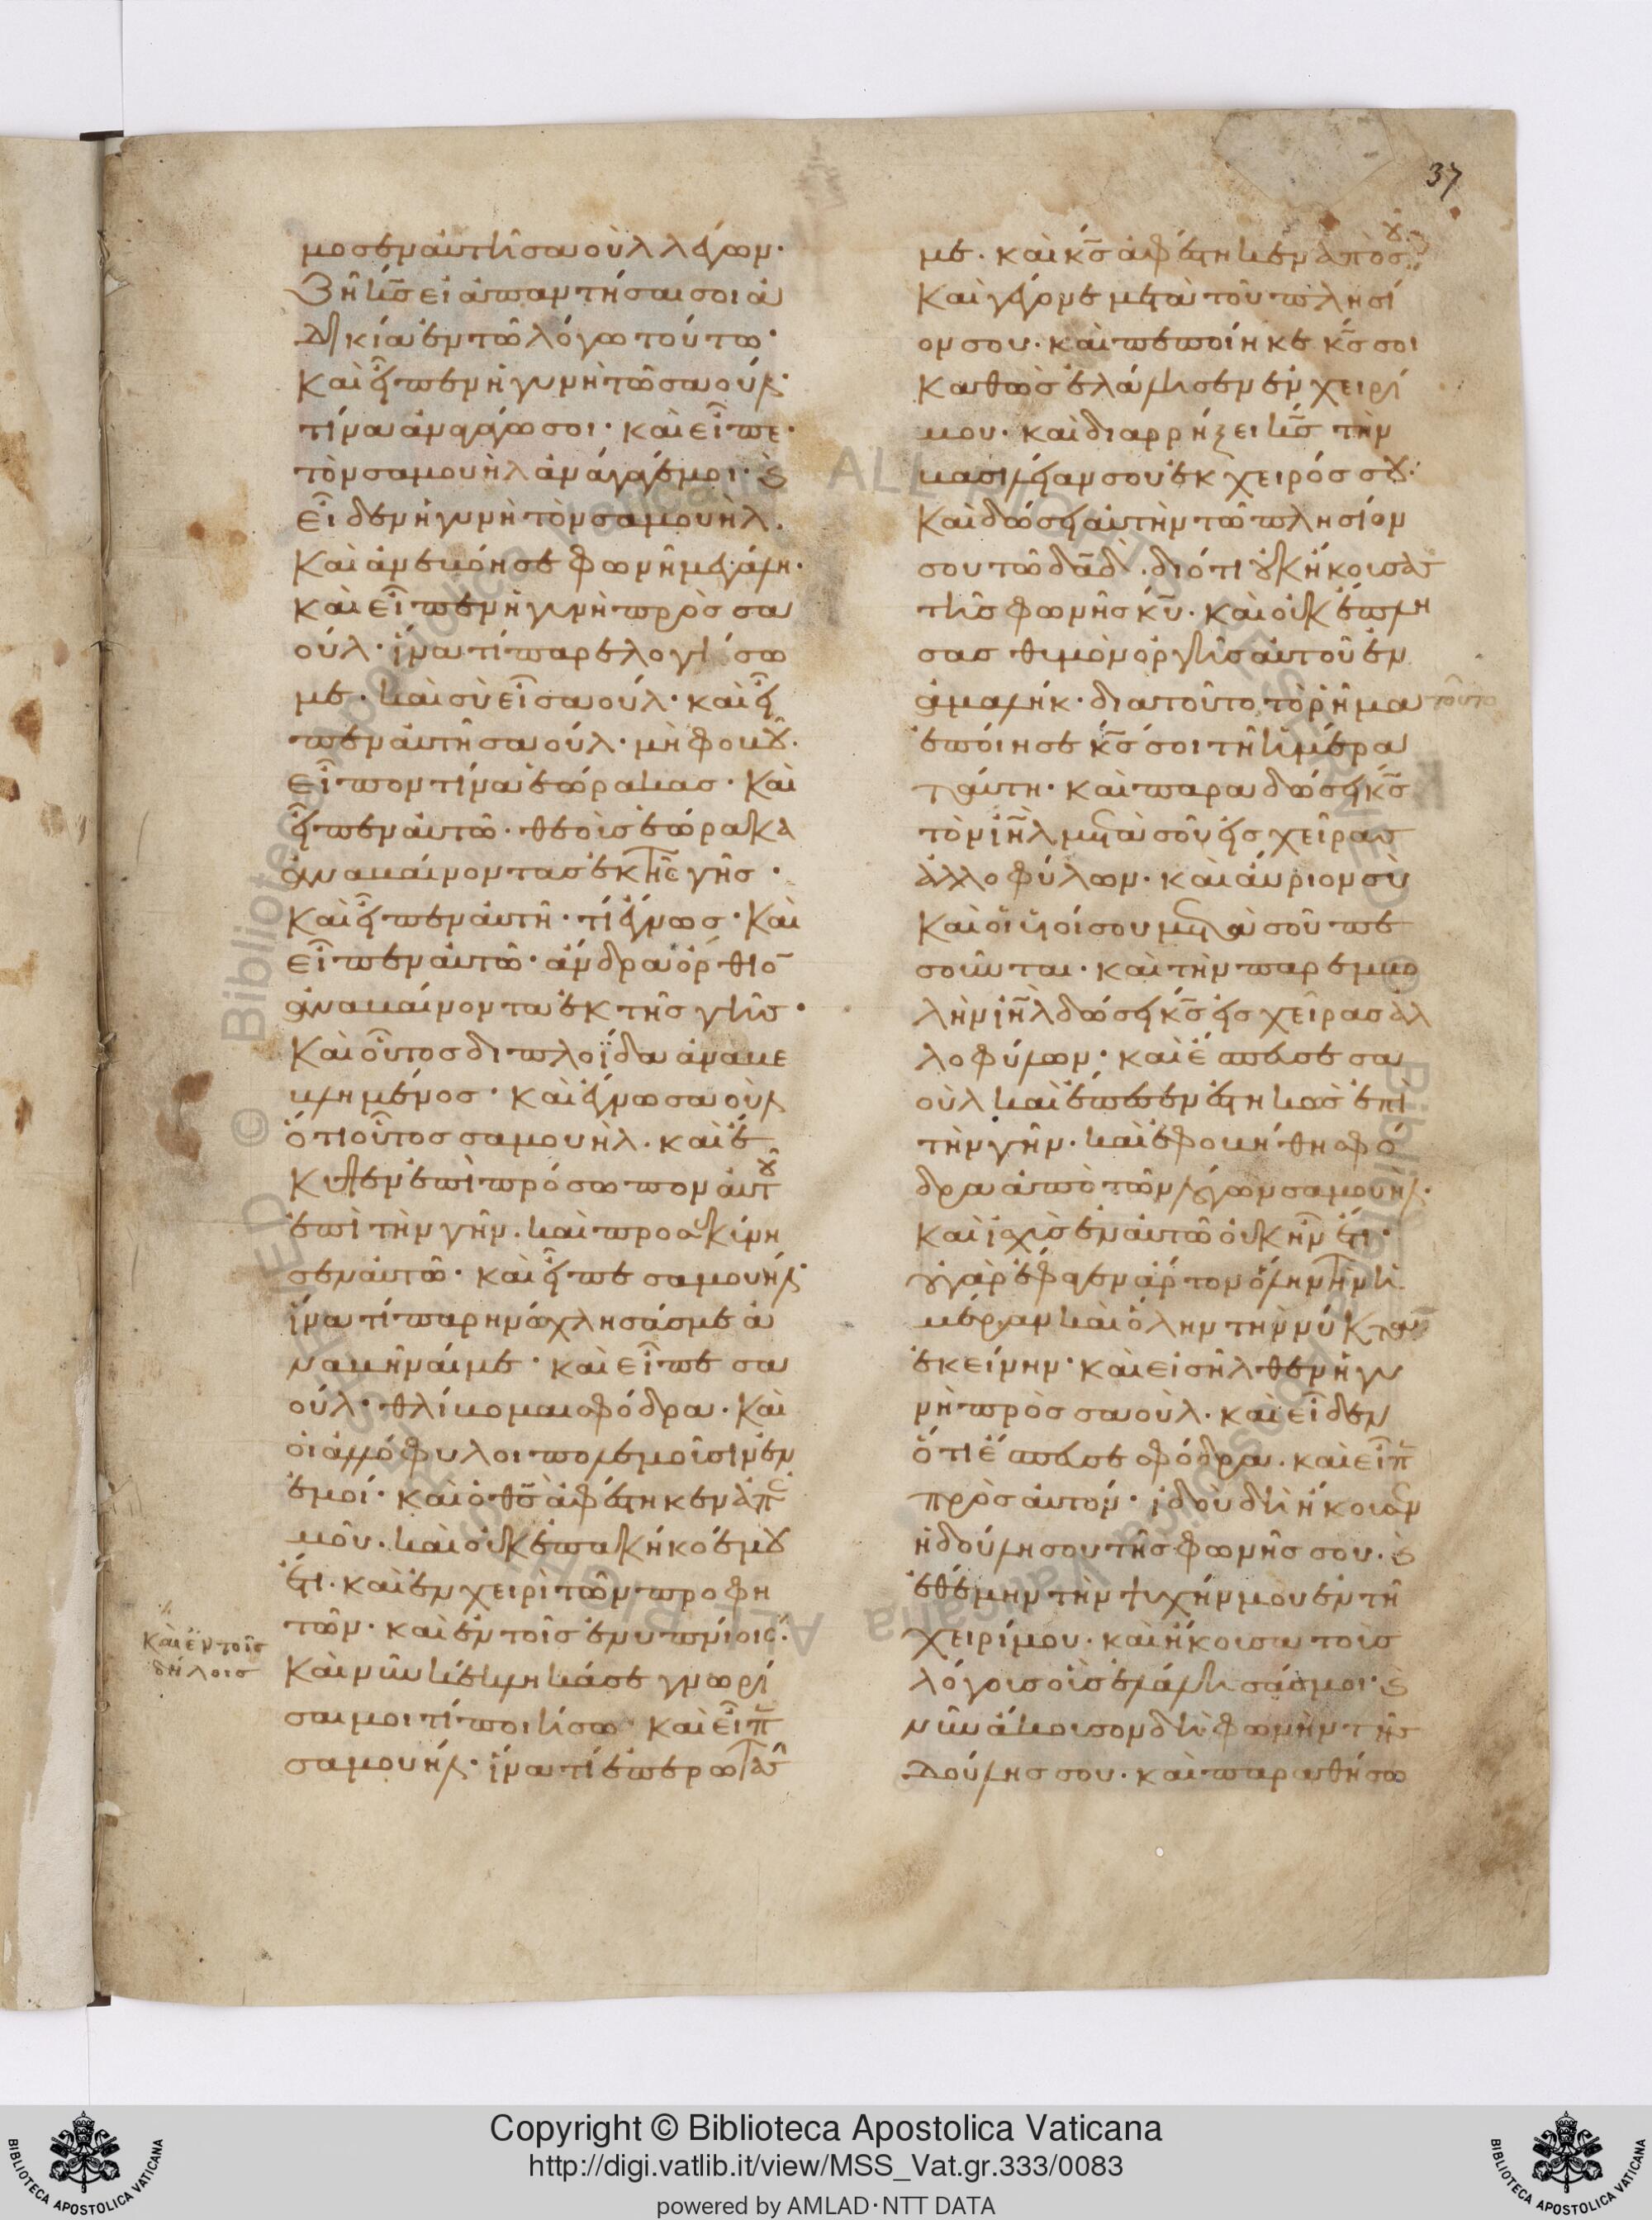 37
μοσεν αυτῆ σαοὺλ λέγων·
Ζῆ κ̅ς̅ εἰ ἀπαντήσαι σοι ἀ
δικία ἐν τῶ λόγω τούτω·
Καὶ εἶπεν ἡ γυνὴ τῶ σαούλ·
τίνα ἀναγάγω σοι· καὶ εἶπε·
τὸν σαμουὴλ ἀνάγαγέ μοι· ϗ
εἶδεν ἡ γυνὴ τὸν σαμουὴλ.
Καὶ ἀνεβόησε φωνῆ μεγάλη·
καὶ εἶπεν ἡ γυνὴ πρὸς σα
ούλ· ἵνα τί παρελογίσω
με. καὶ σὺ εἶ σαούλ· καὶ εἶ
πεν αὐτῆ σαούλ· μὴ φοβοῦ.
εἶπον τίνα ἑώρακας· Καὶ
εἶπεν αὐτῶ· θεοὺς ἑώρακα
ἀναβαίνοντας ἐκ τῆς γῆς·
Καὶ εἶπεν αὐτῆ· τί ἔγνως· Καὶ
εἶπεν αὐτῶ· ἄνδρα ὄρθιο̅
ἀναβαίνοντα ἐκ τῆς γῆς·
Καὶ οὗτος διπλοΐδα ἀναβε
βλημένος· καὶ ἔγνω σαοὺλ
ὅτι οὗτος σαμουὴλ. καὶ ἔ
κυψεν ἐπὶ πρόσωπον αὐτοῦ
ἐπὶ τὴν γῆν. καὶ προσεκύνη
σεν αὐτῶ· καὶ εἶπε σαμουήλ·
ἵνα τί παρηνώχλησάς με ἀ
ναβῆναί με· καὶ εἶπε σα
ούλ· θλίβομαι σφόδρα. Καὶ
οἱ ἀλλόφυλοι πολεμοῦσιν ἐν
ἐμοί· καὶ ὁ θ̅ς̅ ἀφέστηκεν ἀπ ἐ
μοῦ. καὶ οὐκ ἐπακήκοέ μου
ἔτι. καὶ ἐν χειρὶ τῶν προφη
τῶν· καὶ ἐν τοῖς ἐνυπνίοις·
καὶ ἐν τοῖς
δήλοις
Καὶ νῦν κέκληκά σε γνωρί
σαι μοι τί ποιήσω· καὶ εἶπε
σαμουήλ· ἵνα τί ἐπερωτᾶς
με. καὶ κ̅ς̅ ἀφέστηκεν ἀπὸ σοῦ·
Καὶ γέγονε μετὰ τοῦ πλησί
ον σου. καὶ πεποίηκε κ̅ς̅ σοι
καθὼς ἐλάλησεν ἐν χειρί
μου. καὶ διαρρήξει κ̅ς̅ τὴν
βασιλείαν σου ἐκ χειρός σου·
Καὶ δώσει αὐτὴν τῶ πλησίον
σου τῶ δα̅δ̅. διότι οὐκ ἤκουσας
τῆς φωνῆς κ̅υ̅. καὶ οὐκ ἐπλη
σας θυμὸν ὀργῆς αὐτοῦ ἐν
ἀμαλήκ· διατοῦτο τὸ ῥῆμα τοῦτο
ἐποίησε κ̅ς̅ σοι τῆ ἡμέρα
ταύτη· καὶ παραδώσει κ̅ς̅
τὸν ι̅η̅λ̅ μετὰ σοῦ εἰς χεῖρας
ἀλλοφύλων. καὶ αὔριον σὺ
καὶ οἱ υἱοί σου μετὰ σοῦ πε
σοῦνται. καὶ τὴν παρεμβο
λὴν ι̅η̅λ̅ δώσει κ̅ς̅ εἰς χεῖρας ἀλ
λοφύλων· καὶ ἔσπευσε σα
οὺλ καὶ ἔπεσεν ἑστηκὼς ἐπὶ
τὴν γῆν. καὶ ἐφοβήθη σφό
δρα ἀπὸ τῶν λόγων σαμουήλ·
καὶ ἰσχὺς ἐν αὐτῶ οὐκ ἦν ἔτι·
οὐ γὰρ ἔφαγεν ἄρτον ὅλην τὴν ἡ
μέραν καὶ ὅλην τὴν νύκτα
ἐκείνην· καὶ εἰσῆλθεν ἡ γυ
νὴ πρὸς σαοὺλ. καὶ εἶδεν
ὅτι ἔσπευσε σφόδρα. καὶ εἶπε
πρὸς αὐτόν· ἰδοὺ δὴ ἤκουσεν
ἡ δούλη σου τῆς φωνῆς σου. ϗ
ἐθέμην τὴν ψυχήν μου ἐν τῆ
χειρί μου· καὶ ἤκουσα τοὺς
λόγους οὓς ἐλάλησάς μοι· ϗ
νῦν ἄκουσον δὴ φωνὴν τῆς
δούλης σου. καὶ παραθήσω
Copyright © Biblioteca Apostolica Vaticana
http://digi.vatlib.it/view/MSS_Vat.gr.333/0083
powered by AMLAD·NTT DATA
BIBLIOTECA APOSTOLICA VATICANA
BIBLIOTECA APOSTOLICA VATICANA